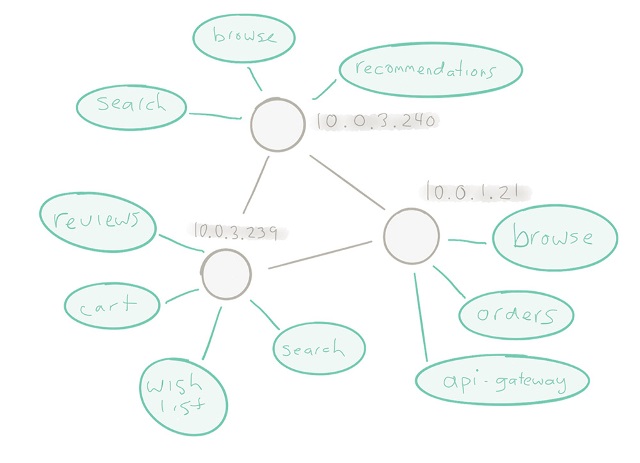 browse
recommendations
search
10.0.3.240
10.0.1.21
reviews
10.0.3.239
browse
cart
orders
search
wish
list
api-gateway